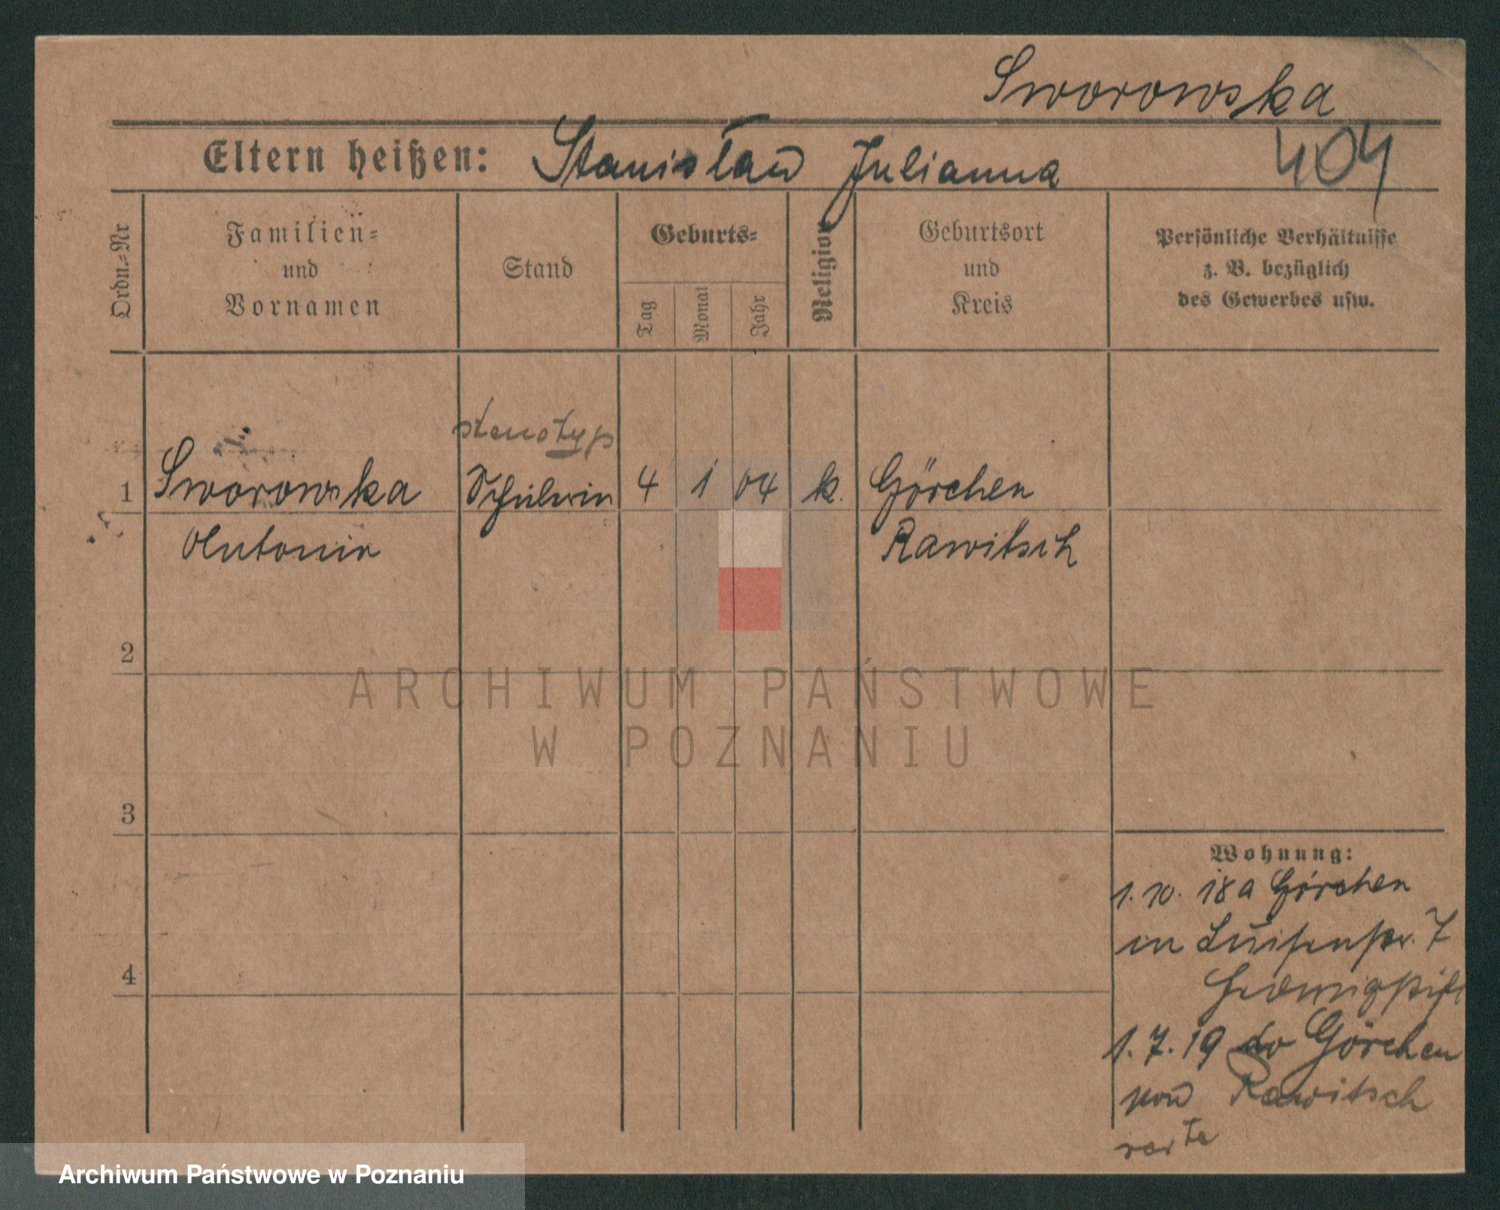 Sworowska
Eltern heißen: Stanisław Julianna 404
Ordn.-Nr
Familien-
und
Vornamen
Stand
Geburts-
Tag
Monat
Jahr
Religion
Geburtsort
und
Kreis
Persönliche Verhältnisse
z. B. bezüglich
des Gewerbes usw.
stenotyp
1 Sworowska Schülerin 4 1 04 k. Görchen
Antonie Rawitsch
2
ARCHIWUM PAŃSTWOWE
W POZNANIU
3
Wohnung:
1. 10. 18 a Görchen
in Luisenstr. 7
Hedwigstift
1. 7. 19 do Görchen
Rawitsch
4
Archiwum Państwowe w Poznaniu